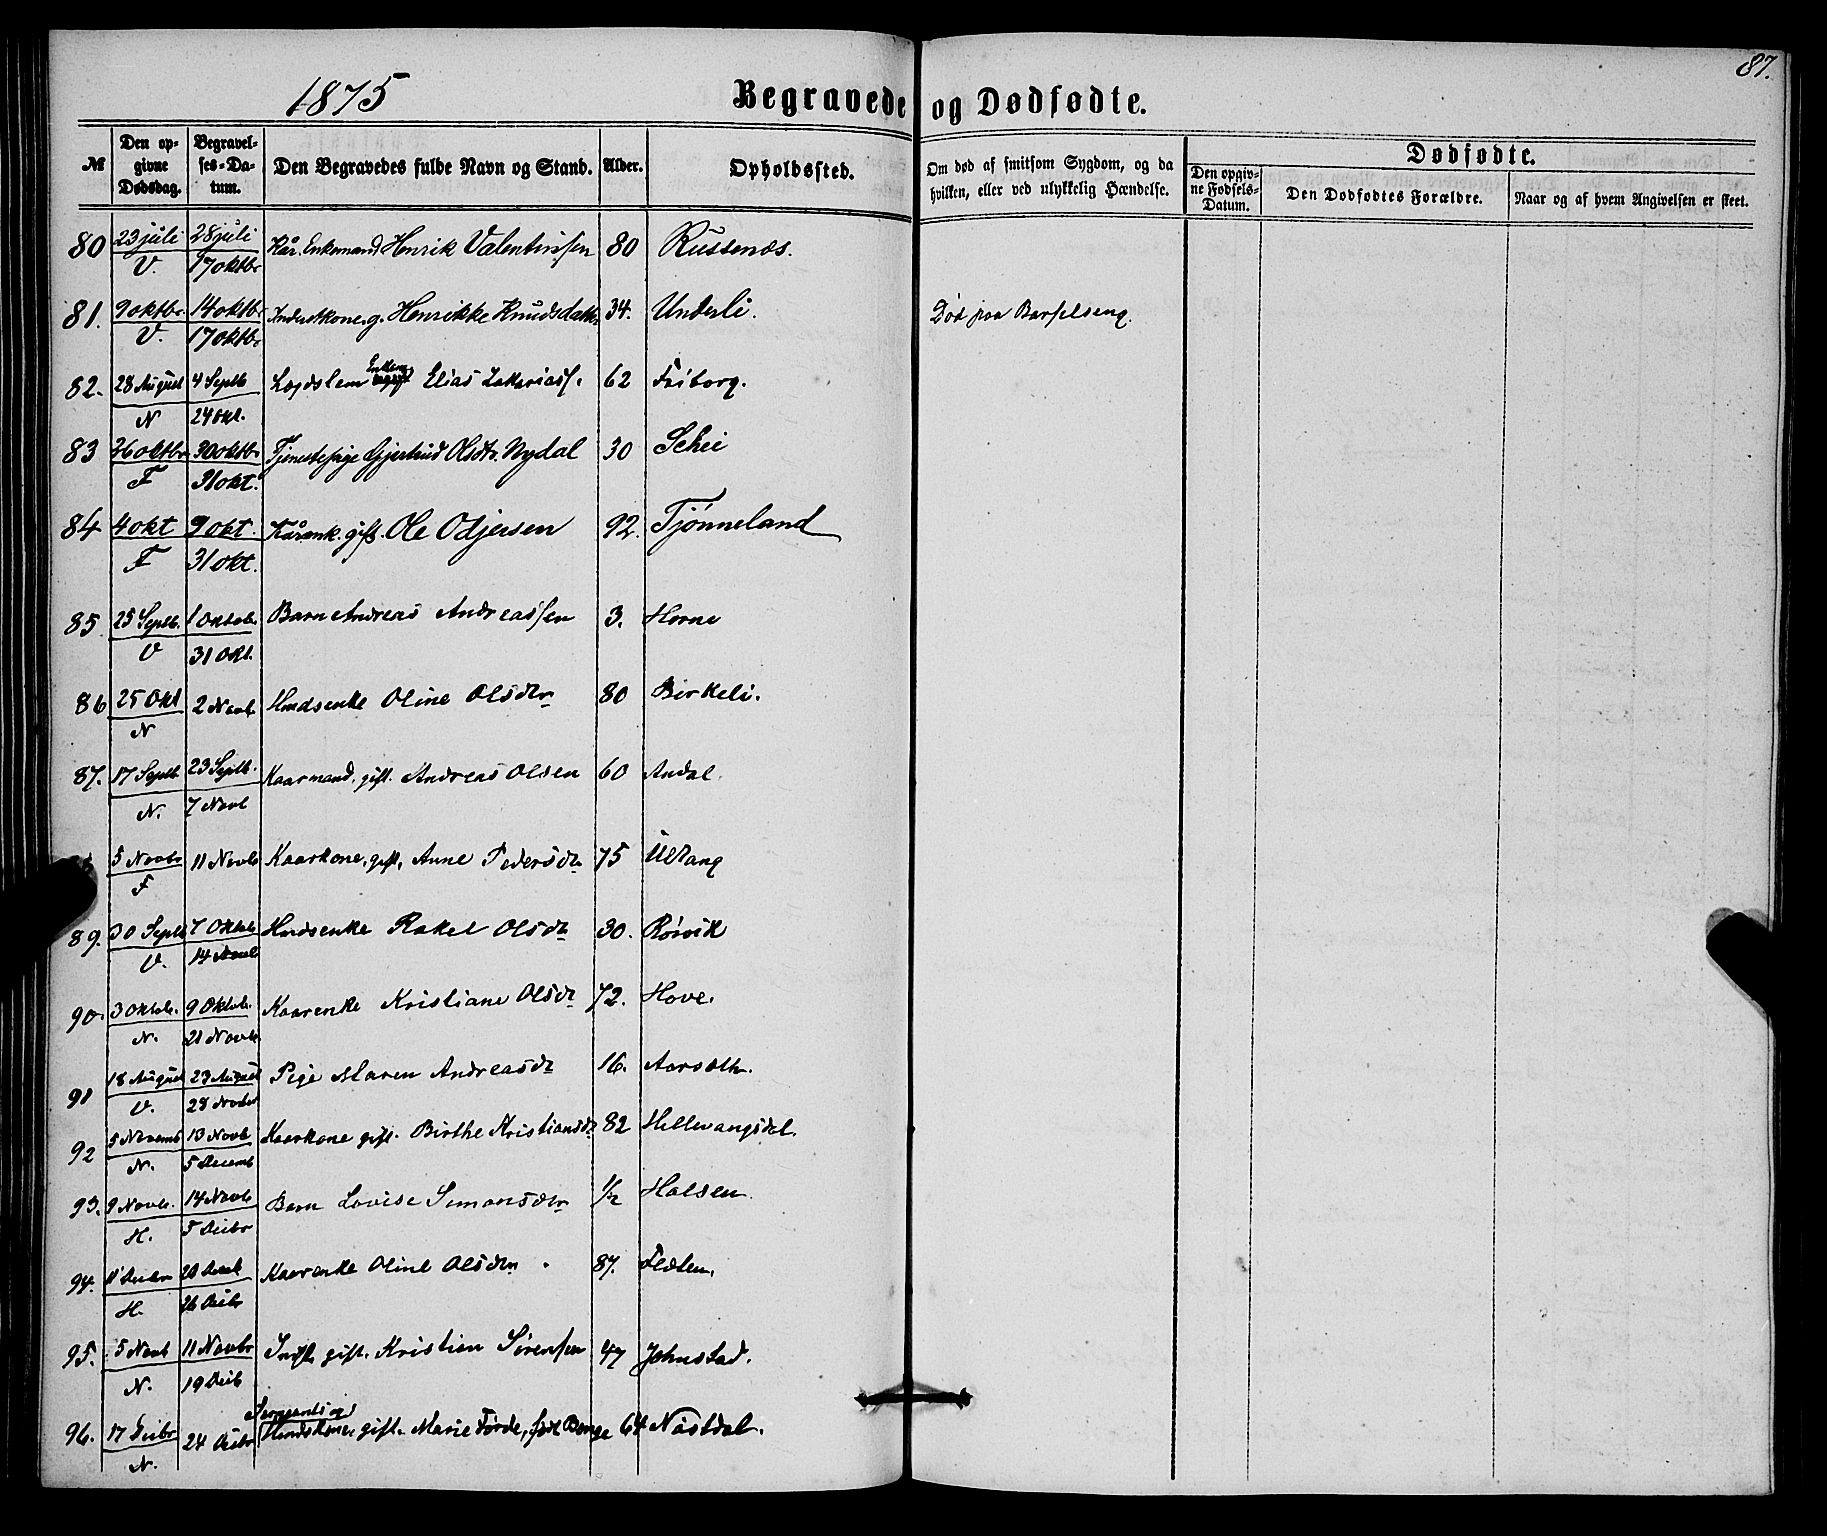 87.
1875
Begravede og Dødfødte.
№ | Den opgivne Dødsdag. | Begravelses-Datum. | Den Begravedes fulde Navn og Stand. | Alder. | Opholdssted. | Om død af smitsom Sygdom, og da hvilken, eller ved ulykkelig Hændelse. | Dødfødte. | Den opgivne Fødsels-Datum. | Den Dødfødtes Forældre. | Naar og af hvem Angivelsen er skeet.
80 | 23 juli V. | 28 juli 17 oktbr | Kår. Enkemand Henrik Valentinssen | 80 | Russenæs.
81. | 9 oktbr. V. | 14 oktbr 17 oktbr | Inderstkone. g. Henrikke Knudsdatter | 34. | Underli. | Død paa Barselseng.
82. | 28 August N | 4 Septb 24 Okt. | Lægdslem Enkem Elias Zakariass. | 62 | Friborg.
83 | 26 oktbr F | 30 oktbr 31 okt. | Tjenestepige Gjertrud Olsdtr. Nydal | 30 | Schei
84 | 4 okt F | 9 okt. 31 okt. | Kårmk. gift. Ole Odjersen | 92. | Tjønneland
85. | 25 Septb. V | 1 Oktob. 31 Okt. | Barn Andreas Andreassen | 3. | Horne
86 | 25 Okt N | 2 Novb | Hmdsenke Oline Olsdtr | 80 | Birkeli.
87. | 17 Septb N. | 23 Septb. 7 Novb | Kaarmand, gift. Andreas Olsen | 60 | Andal.
5 Novbr F | 11 Novb | Kaarkone, gift, Anne Pedersdtr | 75 | Ultang
89. | 30 Septb V. | 7 Oktob 14 Novb | Hmdsenke Rakel Olsdtr | 30. | Rørvik
90. | 3 Oktob. N. | 9 Oktob. 21 Novb | Kaarenke Kristiane Olsdtr | 72. | Hove.
91 | 18 August V. | 23 August 28 Novbr | Pige Maren Andreasdtr | 16. | Aarsæth.
92 | 5 Novemb N. | 13 Novb 5 Decemb | Kaarkone gift. Birthe Kristiansdtr | 82 | Hellevangsdal.
93. | 9 Novb. H. | 14 Novb 5 Decbr | Barn Lovise Simonsdtr | 1/2 | Halsen
94. | 11 Decbr H. | 20 Decb 26 Decbr | Kaarenke Oline Olsdtr. | 87. | Fladen.
95. | 5 Novb N. | 11 Novbr 19 Decb | Indst. gift. Kristian Sørensen | 47 | Johnstad.
96. | 17 Decbr N. | 24 Decbr | Sergeants og Hmdskone, gift. Marie Førde, født Bange | 64 | Nøstdal.